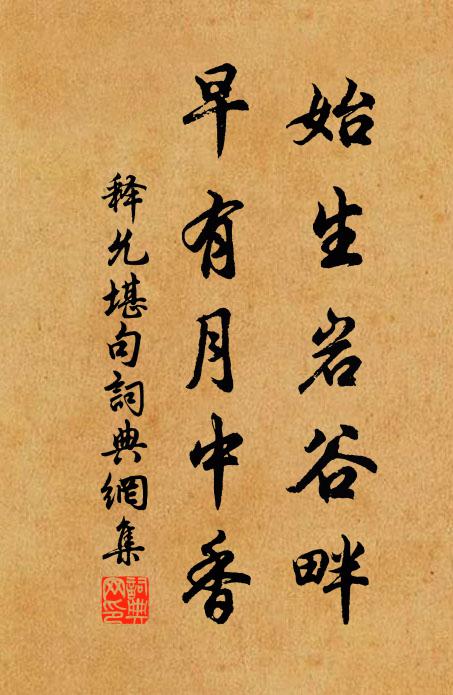 始生岩谷畔
早有月中香
释允堪句詞典網集
詞典
网印